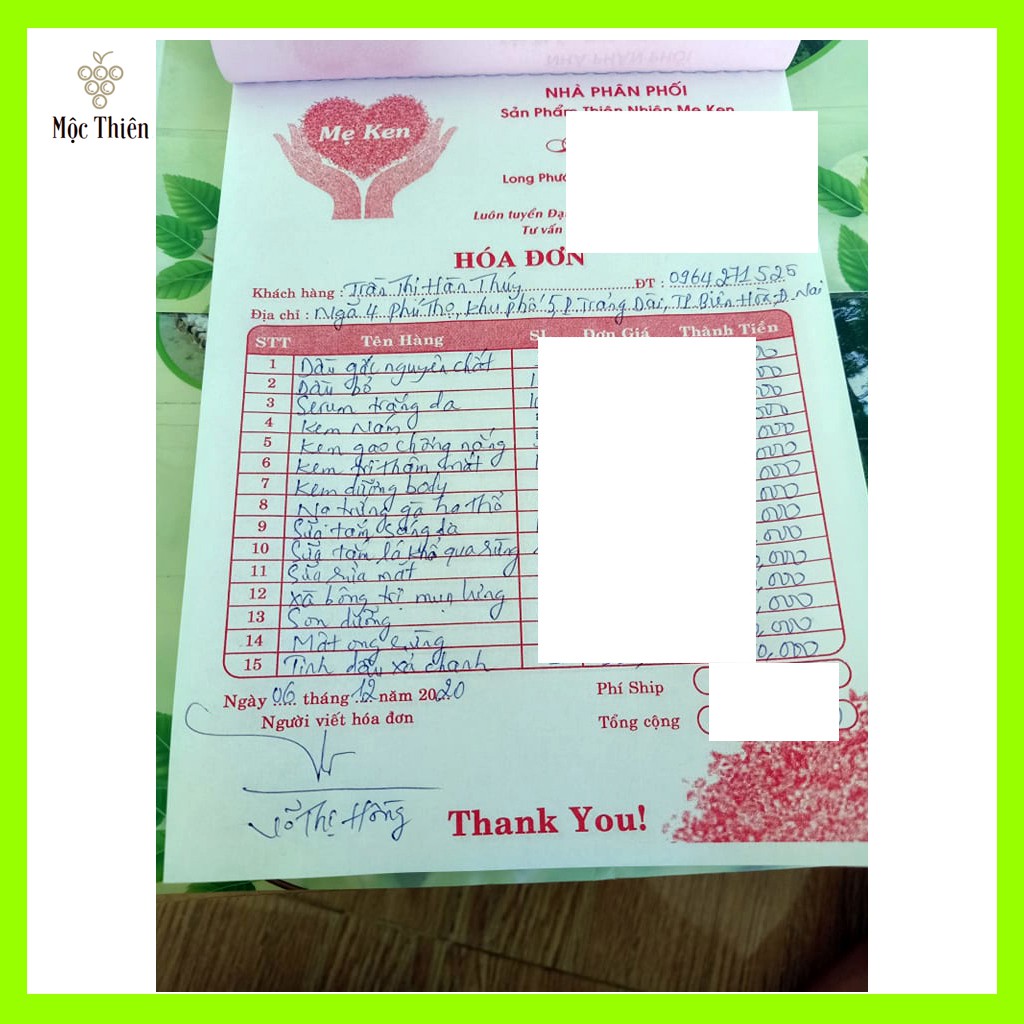 NHÀ PHÂN PHỐI
Mộc Thiên
NHÀ PHÂN PHỐI
Sản Phẩm Thiên Nhiên Mẹ Ken
Mẹ Ken
Long Phướ
Luôn tuyển Đạ
Tư vấn
HÓA ĐƠN
Khách hàng : Trần Thị Hân Thúy ĐT : 0964271525
Địa chỉ : Ngã 4 Phú Thọ, Khu phố 5, P. Trảng Dài, TP Biên Hòa, Đ. Nai
STT Tên Hàng SL Đơn Giá Thành Tiền
1 Dầu gấc nguyên chất
2 Dầu bơ 1
3 Serum trắng da 10
4 Kem Nám
5 Kem gạo chống nắng
6 Kem trị thâm mắt
7 Kem dưỡng body
8 Nạ trứng gà hạ thổ
9 Sữa tắm sáng da
10 Sữa tắm lá khổ qua rừng
11 Sữa rửa mặt
12 Xà bông trị mụn lưng
13 Son dưỡng
14 Mật ong rừng
15 Tinh dầu xả chanh
Ngày 06 tháng 12 năm 2020 Phí Ship
Người viết hóa đơn Tổng cộng
Võ Thị Hồng
Thank You!